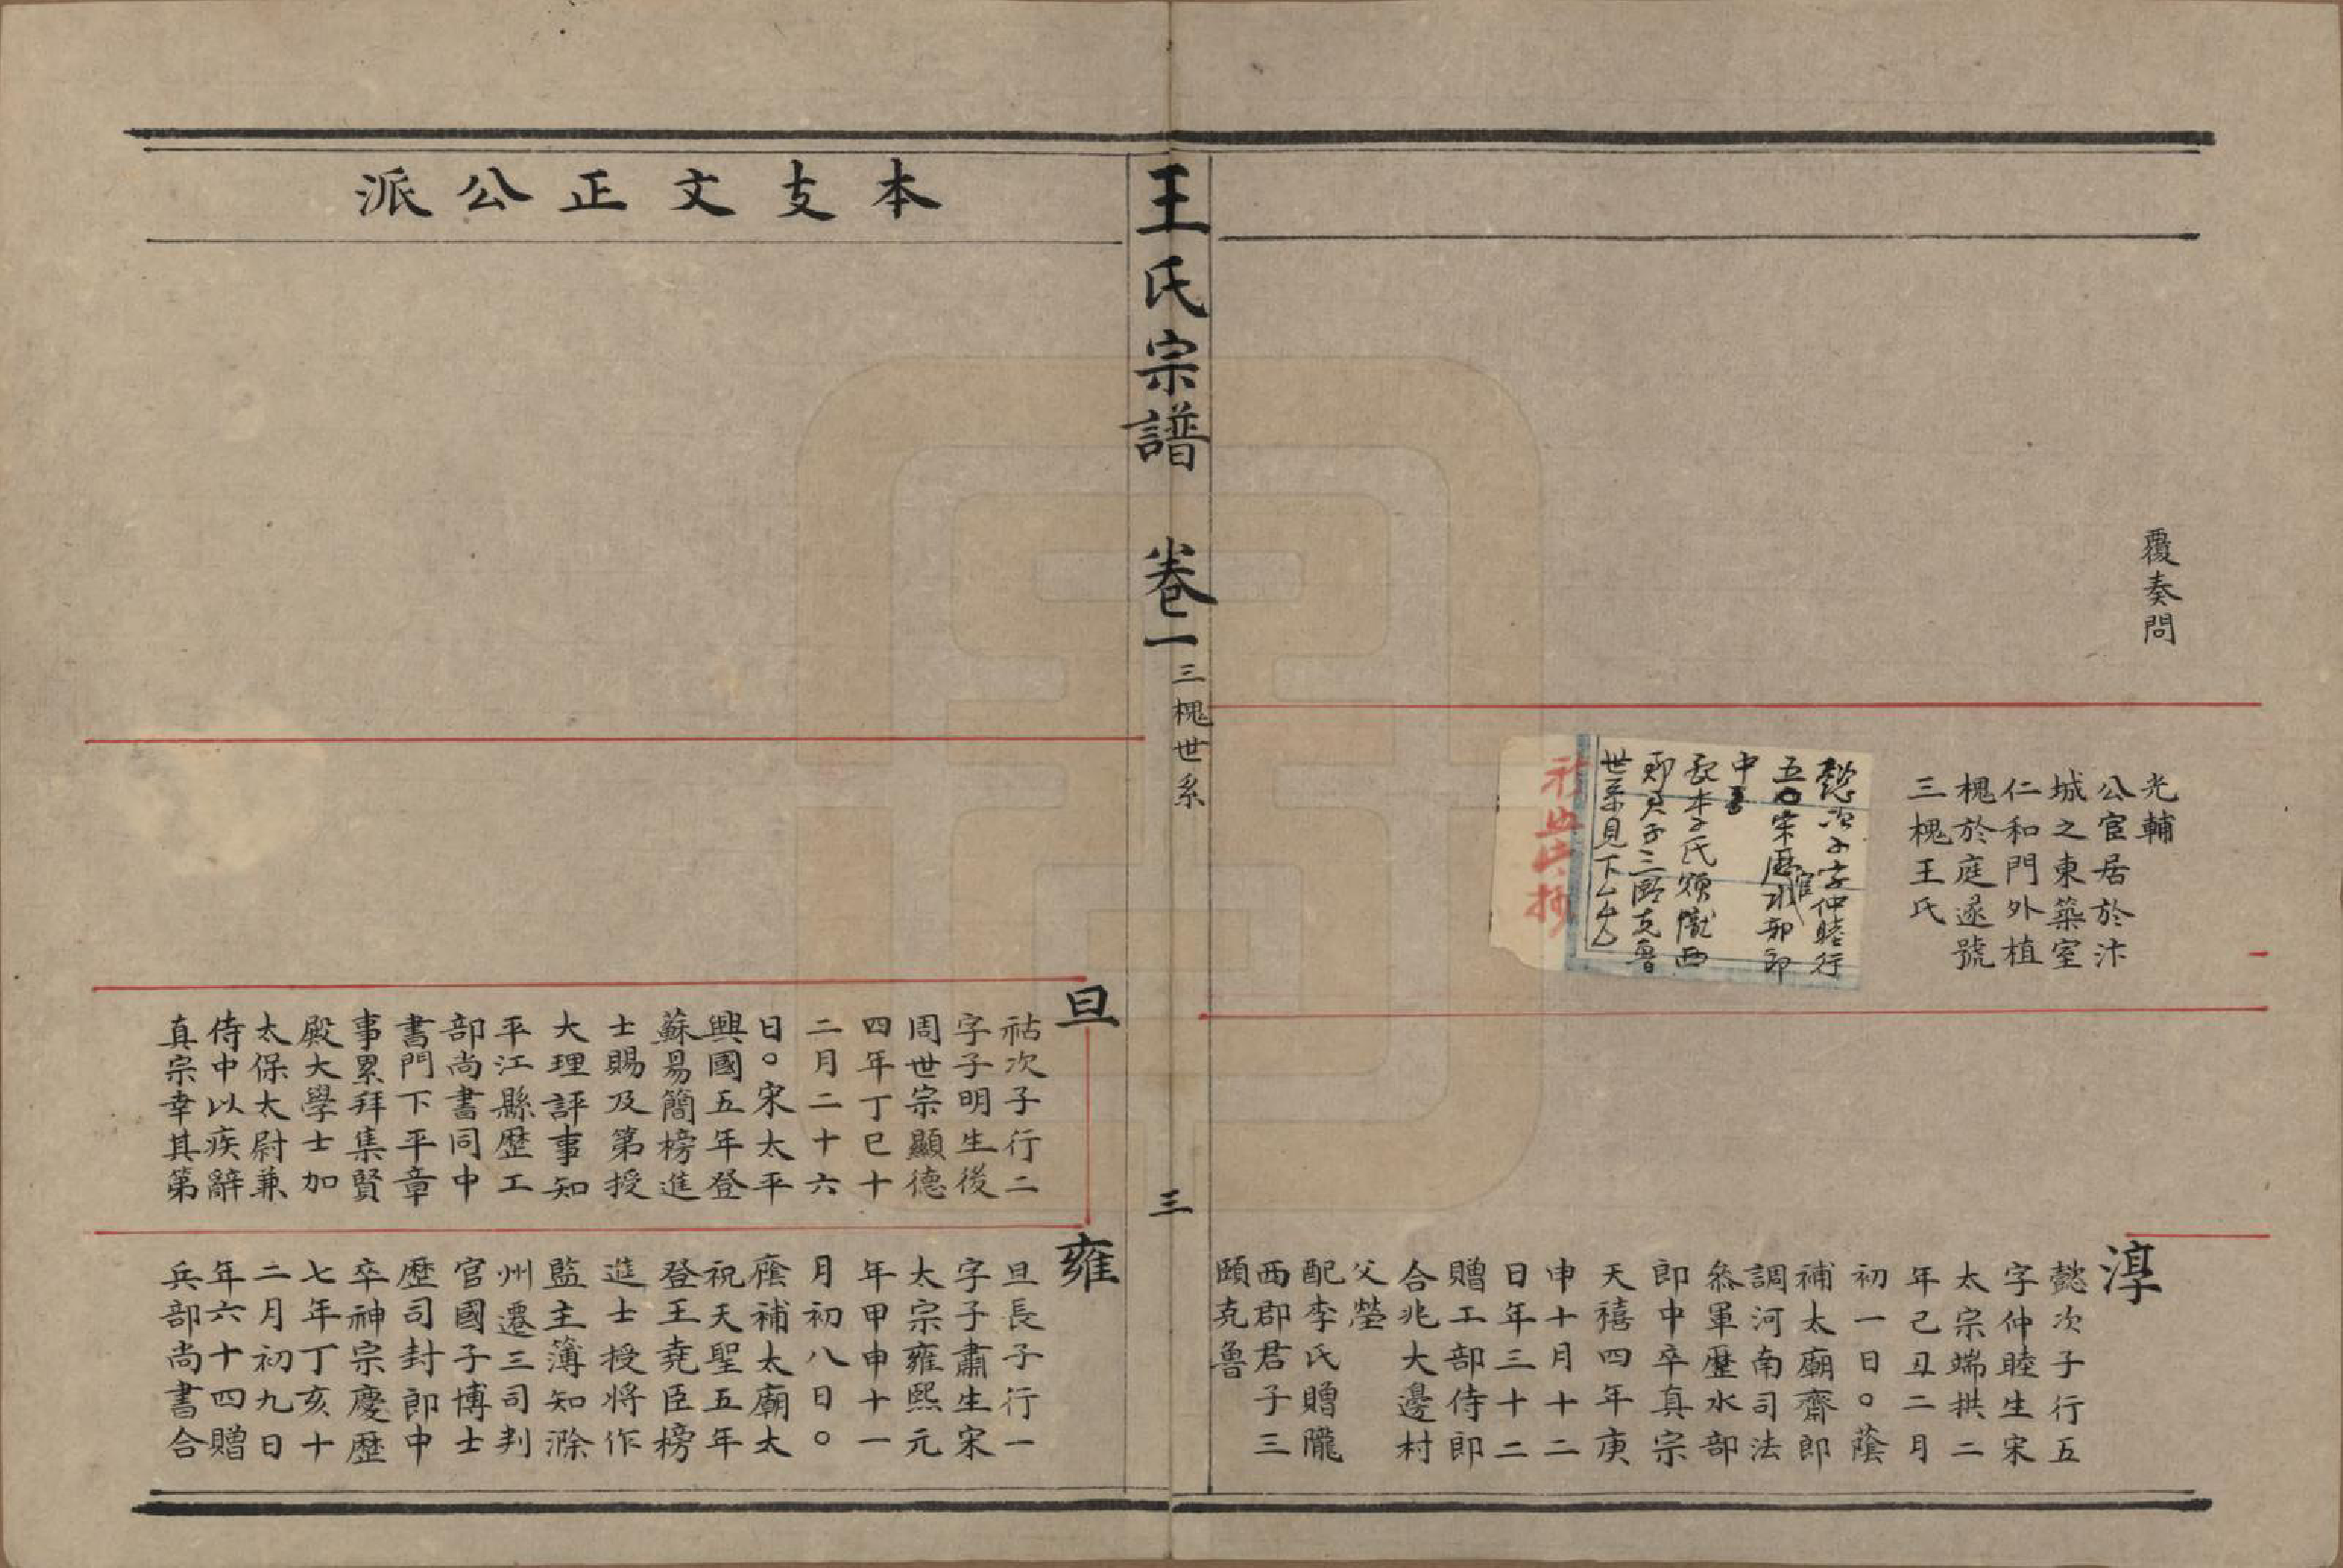 覆奏問
光輔
公宦居於汴
城之東築室
仁和門外植
槐於庭遂號
三槐王氏
懿次子字仲睦行
五〇宋歷官水部郎
中
配李氏贈隴西
郡君子三頤克魯
世系見下
淳
懿次子行五
字仲睦生宋
太宗端拱二
年己丑二月
初一日。蔭
補太廟齋郎
調河南司法
叅軍歷水部
郎中卒真宗
天禧四年庚
申十月十二
日年三十二
贈工部侍郎
合兆大邊村
父塋
配李氏贈隴
西郡君子三
頤克魯
王氏宗譜 卷一 三槐世系 三
本支文正公派
旦
祜次子行二
字子明生後
周世宗顯德
四年丁巳十
二月二十六
日。宋太平
興國五年登
蘇易簡榜進
士賜及第授
大理評事知
平江縣歷工
部尚書同中
書門下平章
事累拜集賢
殿大學士加
太保太尉兼
侍中以疾辭
真宗幸其第
雍
旦長子行一
字子肅生宋
太宗雍熙元
年甲申十一
月初八日。
廕補太廟太
祝天聖五年
登王堯臣榜
進士授將作
監主簿知滁
州遷三司判
官國子博士
歷司封郎中
卒神宗慶歷
七年丁亥十
二月初九日
年六十四贈
兵部尚書合